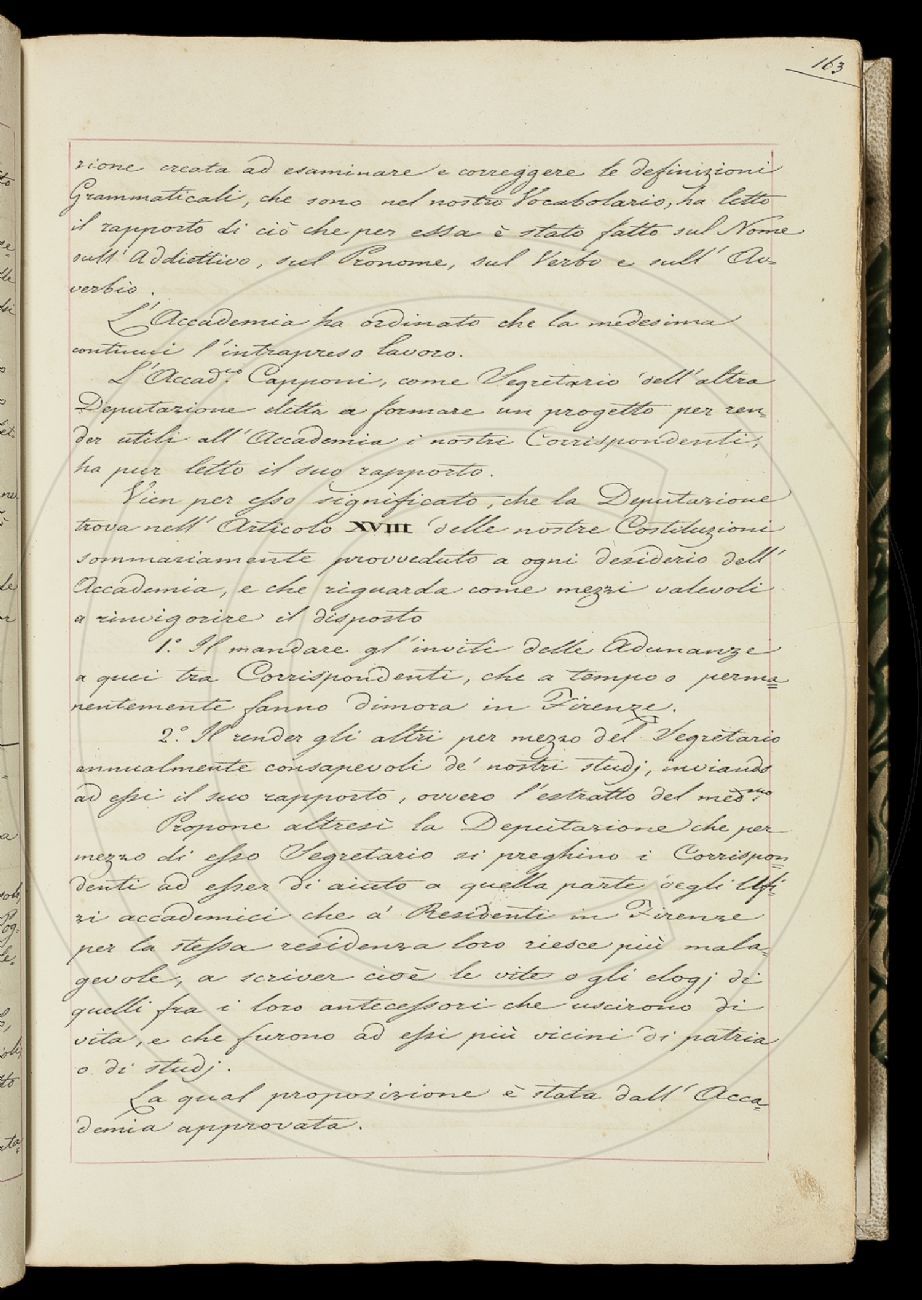 163
zione creata ad esaminare e correggere le definizioni
Grammaticali, che sono nel nostro Vocabolario, ha letto
il rapporto di ciò che per essa è stato fatto sul Nome
sull' Addiettivo, sul Pronome, sul Verbo e sull' Av=
verbio.
L'Accademia ha ordinato che la medesima
continui l'intrapreso lavoro.
L'Accad.co Capponi, come Segretario dell'altra
Deputazione eletta a formare un progetto per ren=
der utili all'Accademia i nostri Corrispondenti,
ha pur letto il suo rapporto.
Vien per esso significato, che la Deputazione
trova nell' Articolo XVIII delle nostre Costituzioni
sommariamente provveduto a ogni desiderio dell'
Accademia, e che riguarda come mezzi valevoli
a rinvigorire il disposto
1.° Il mandare gl'inviti delle Adunanze
a quei tra Corrispondenti, che a tempo o perma=
nentemente fanno dimora in Firenze.
2.° Il render gli altri per mezzo del Segretario
annualmente consapevoli de' nostri studj, inviando
ad essi il suo rapporto, ovvero l'estratto del med.mo
Propone altresì la Deputazione che per
mezzo di esso Segretario si preghino i Corrispon=
denti ad esser di aiuto a quella parte degli Ufi=
zi accademici che a' Residenti in Firenze
per la stessa residenza loro riesce più mala=
gevole, a scriver cioè le vite o gli elogj di
quelli fra i loro antecessori che uscirono di
vita, e che furono ad essi più vicini di patria
o di studj.
La qual proposizione è stata dall' Acca=
demia approvata.